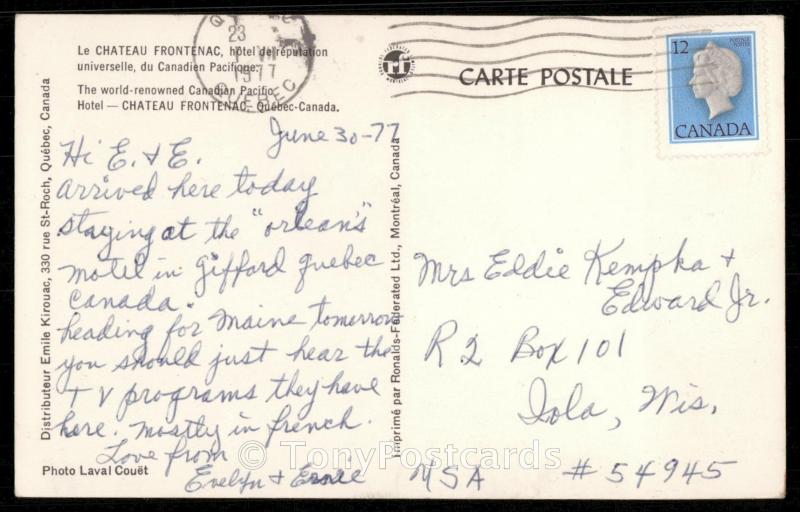 Le CHATEAU FRONTENAC, hôtel de réputation
universelle, du Canadien Pacifique.
The world-renowned Canadian Pacific
Hotel — CHATEAU FRONTENAC, Québec-Canada.
23
1977
QUEBEC
CARTE POSTALE
12
POSTAGE
POSTES
CANADA
June 30-77
Hi E. + E.
arrived here today
staying at the "orlean's"
motel in Gifford quebec
Canada.
heading for Maine tomorrow
you should just hear the
TV programs they have
here. mostly in french.
Love from
Evelyn + Ernie
Mrs Eddie Kempka +
Edward Jr.
R 2 Box 101
Iola, Wis.
USA # 54945
Distributeur Emile Kirouac, 330 rue St-Roch, Québec, Canada
Imprimé par Ronalds-Federated Ltd., Montréal, Canada
Photo Laval Couët
© TonyPostcards